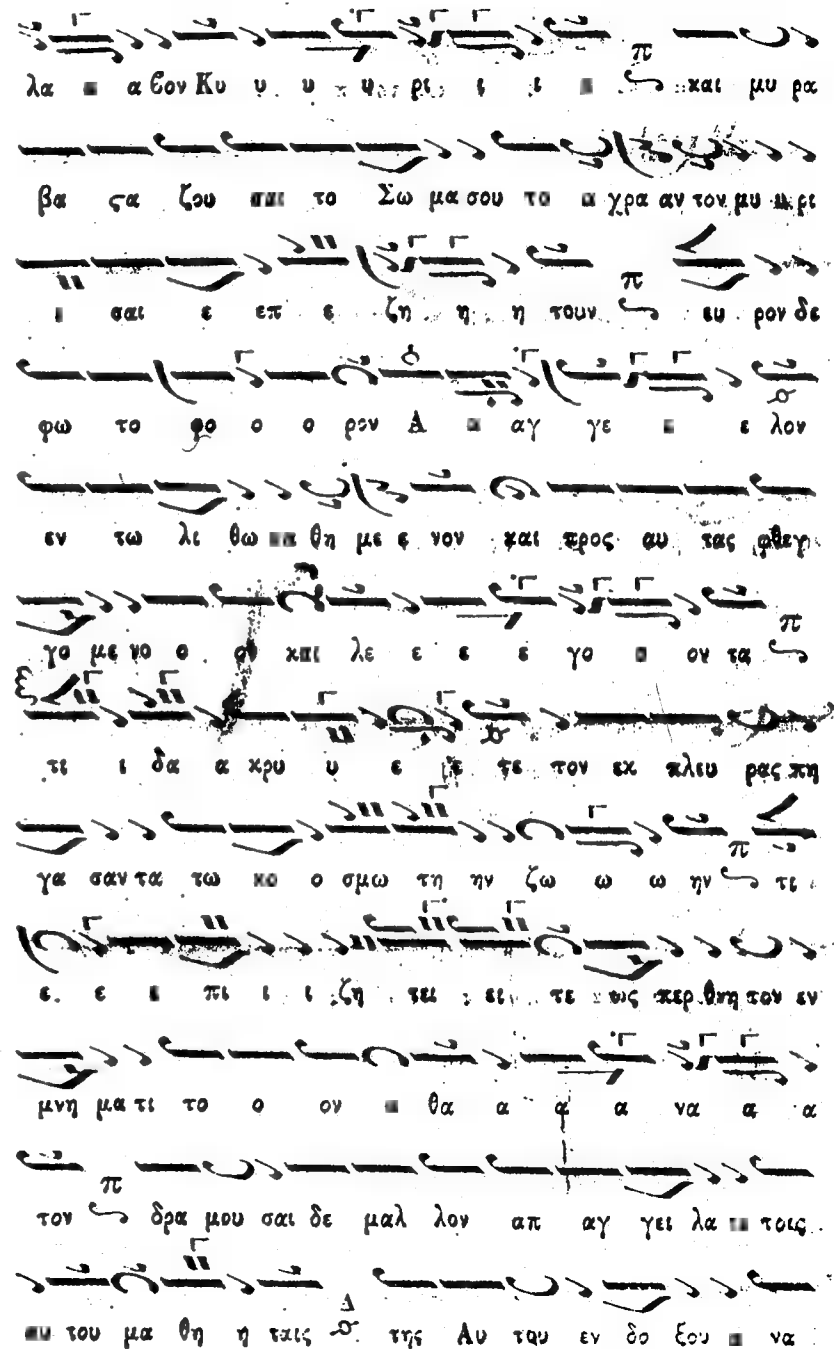 λα α βον Κυ υ υ υ ρι ι ι και μυ ρα
βα ϛα ζου σαι το Σω μα σου το α χρα αν τον μυ ρι
ι σαι ε επ ε ζη η η τουν ευ ρον δε
φω το φο ο ο ρον Α αγ γε ε λον
εν τω λι θω θη με ε νον και προς αυ τας φθεγ
γο με νο ο ον και λε ε ε ε γο ον τα
τι ι δα α κρυ υ ε ε τε τον εκ πλευ ρας πη
γα σαν τα τω κο ο σμω τη ην ζω ω ω ην τι
ε ε ε πι ι ι ζη τει ει τε ως περ θνη τον εν
μνη μα τι το ο ον α θα α α α να α α
τον δρα μου σαι δε μαλ λον απ αγ γει λα τε τοις
αυ του μα θη η ταις της Αυ του εν δο ξου α να